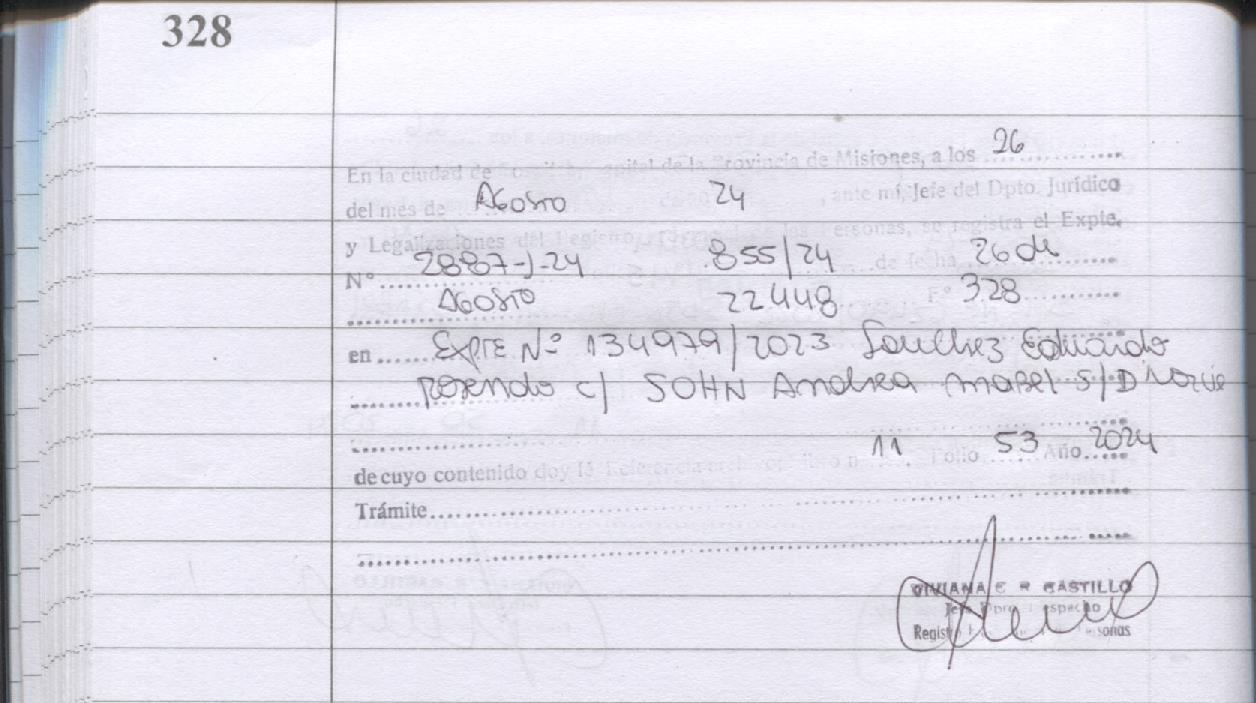 328
En la ciudad de Posadas, capital de la Provincia de Misiones, a los 26
del mes de Agosto 24, ante mí, Jefe del Dpto. Jurídico
y Legalizaciones del Registro de las Personas, se registra el Expte.
N° 2887-J-24 855/24 de fecha 26 de
Agosto 22448 F° 328
en Expte Nº 134979/2023 Eduardo
Rosendo c/ SOHN Andrea Mabel S/
11 53 2024
de cuyo contenido doy fé. Referencia archivo: libro n Folio Año
Trámite
VIVIANA E R CASTILLO
Jefe Dpto. Despacho
Registro Personas